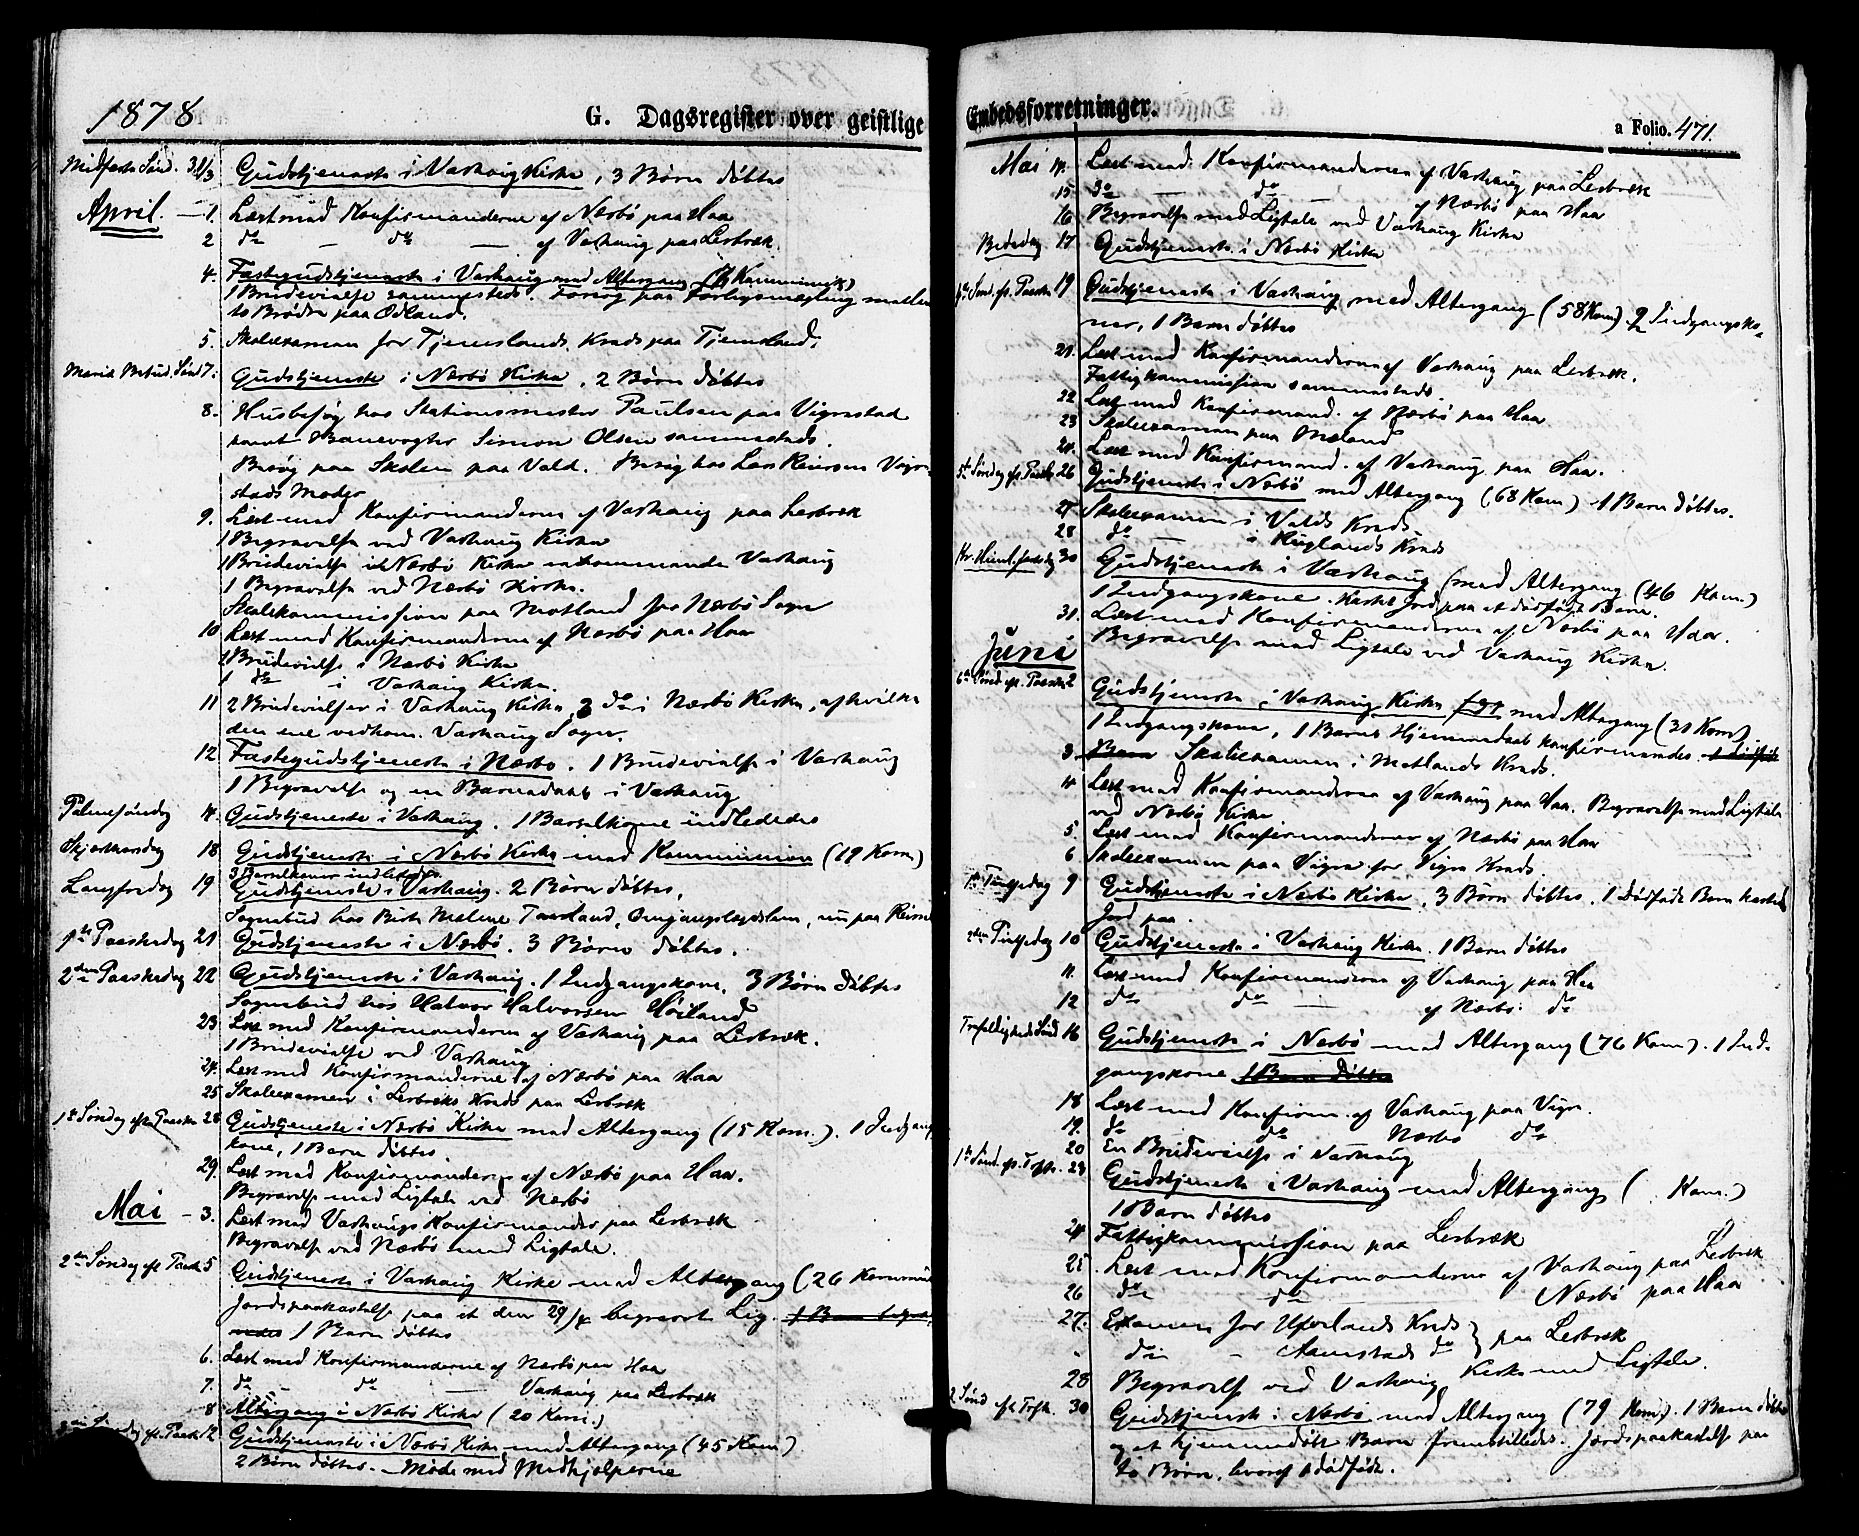 1878
G. Dagsregister over geistlige
Midfaste Sønd. 31/3 Gudstjeneste i Varhaug Kirke, 3 Børn døbtes
April. — 1. Læst med Konfirmanderne af Nærbø paa Haa
2 do — do — af Varhaug paa Lerbræk.
4. Fastegudstjeneste i Varhaug med Altergang
1 Brudevielse sammesteds. Forsøg paa Forligsmægling mellem
to Brødre paa Ødland.
5. Skoleexamen for Tjemslands Kreds paa Tjemsland.
Mariæ Bebud. Sønd 7. Gudstjeneste i Nærbø Kirke, 2 Børn døbtes
8. Husbesøg hos Stationsmester Paulsen paa Vigrestad
samt Banevogter Simon Olsen sammesteds.
Besøg paa Skolen paa Vald. Besøg hos Lars Reiersen Vigre-
stads Moder
9. Læst med Konfirmanderne af Varhaug paa Lerbræk
1 Begravelse ved Varhaug Kirke
1 Brudevielse i Nærbø Kirke vedkommende Varhaug
1 Begravelse ved Nærbø Kirke.
Skolekommission paa Motland for Nærbø Sogn
10 Læst med Konfirmanderne af Nærbø paa Haa
1 Brudevielse i Nærbø Kirke
1 do i Varhaug Kirke.
11 2 Brudevielser i Varhaug Kirke, 3 do i Nærbø Kirke, af hvilke
den ene vedkom. Varhaug Sogn.
12 Fastegudstjeneste i Nærbø. 1 Brudevielse i Varhaug
1 Begravelse og en Barnedaab i Varhaug
Palmesøndag 14. Gudstjeneste i Varhaug. 1 Barselkone indlededes
Skjærthorsdag 18 Gudstjeneste i Nærbø Kirke med Kommunion (19 Kom.)
3 Barselkoner indlededes
Langfredag 19 Gudstjeneste i Varhaug. 2 Børn døbtes,
Sognebud hos Birte Malene Taarland, Omgangslægdslem, nu paa Reime
1ste Paaskedag 21 Gudstjeneste i Nærbø. 3 Børn døbtes.
2den Paaskedag 22 Gudstjeneste i Varhaug. 1 Indgangskone, 3 Børn døbtes
Sognebud hos Halvor Halvorsen Høiland
23. Læst med Konfirmanderne af Varhaug paa Lerbræk.
1 Brudevielse ved Varhaug
24. Læst med Konfirmanderne af Nærbø paa Haa
25 Skoleexamen i Lerbræks Kreds paa Lerbræk
1ste Søndag eft. Paaske 28 Gudstjeneste i Nærbø Kirke med Altergang (15 Kom.). 1 Indgangs
kone, 1 Barn døbtes
29. Læst med Konfirmanderne af Nærbø paa Haa.
Begravelse med Ligtale ved Nærbø
Mai — 3. Læst med Varhaugs Konfirmander paa Lerbræk
Begravelse ved Nærbø med Ligtale.
2den Søndag eft. Paaske 5 Gudstjeneste i Varhaug Kirke med Altergang (26 Kommuni
Jordspaakastelse paa et den 29/4 begravet Lig.
1 Barn døbtes
6. Læst med Konfirmanderne af Nærbø paa Haa
7. do — do — Varhaug paa Lerbræk
8 Altergang i Nærbø Kirke (20 Kom.)
eft. Paaske 12 Gudstjeneste i Nærbø Kirke med Altergang (45 Kom.)
2 Børn døbtes. Møde med Medhjælperne
Embedsforretninger.
a Folio. 471.
Mai 14. Læst med Konfirmanderne af Varhaug paa Lerbræk
15 do — do af Nærbø paa Haa
16 Begravelse med Ligtale ved Varhaug Kirke
Bededag 17 Gudstjeneste i Nærbø Kirke
4de Sønd. eft. Paaske 19 Gudstjeneste i Varhaug med Altergang (58 Kom.) 2 Indgangsko-
ner, 1 Barn døbtes
21. Læst med Konfirmanderne af Varhaug paa Lerbræk.
Fattigkommission sammesteds.
22 Læst med Konfirmand. af Nærbø paa Haa
23 Skoleexamen paa Mæland
24. Læst med Konfirmand. af Varhaug paa Haa.
5te Søndag eft. Paaske 26 Gudstjeneste i Nærbø med Altergang (68 Kom.) 1 Barn døbtes.
27 Skoleexamen i Valds Kreds
28 do — i Kuglands Kreds
Kr. Himmelfartsdag 30 Gudstjeneste i Varhaug (med Altergang (46 Kom.)
1 Indgangskone. Kastet Jord paa et dødfødt Barn.
31. Læst med Konfirmanderne af Nærbø paa Haa.
Begravelse med Ligtale ved Varhaug Kirke.
Juni
6te Sønd. eft. Paaske 2 Gudstjeneste i Varhaug Kirke med Altergang (31 Kom.)
1 Indgangskone, 1 Barns Hjemmedaab konfirmeredes.
3 Barn Skoleexamen i Motlands Kreds.
4 Læst med Konfirmanderne af Varhaug paa Haa. Begravelse med Ligtale
ved Nærbø Kirke
5. Læst med Konfirmanderne af Nærbø paa Haa
6 Skoleexamen paa Vigre for Vigre Kreds.
1ste Pintsedag 9 Gudstjeneste i Nærbø Kirke, 3 Børn døbtes, 1 dødfødt Barn kastedes
Jord paa.
2den Pintsedag 10 Gudstjeneste i Varhaug Kirke. 1 Barn døbtes
11. Læst med Konfirmanderne af Varhaug paa Haa
12 do do — af Nærbø do
Trefoldigheds Sønd 16 Gudstjeneste i Nærbø med Altergang (76 Kom.). 1 Ind-
gangskone 1 Barn døbtes
18 Læst med Konfirm. af Varhaug paa Vigre.
19. do do Nærbø do
20 En Brudevielse i Varhaug
1ste Sønd. eft. Trft. 23 Gudstjeneste i Varhaug med Altergang ( Kom.)
1 Barn døbtes
24 Fattigkommission paa Lerbræk
25 Læst med Konfirmanderne af Varhaug paa Lerbræk
26 do do Nærbø paa Haa
27. Examen for Uferlands Kreds } paa Lerbræk
do — Aanestads do
28 Begravelse ved Varhaug Kirke med Ligtale.
2 Sønd eft. Trft. 30 Gudstjeneste i Nærbø med Altergang (79 Kom.). 1 Barn døbtes
og et hjemmedøbt Barn fremstilledes. Jordspaakastelse paa
to Børn, hvoraf 1 dødfødt.